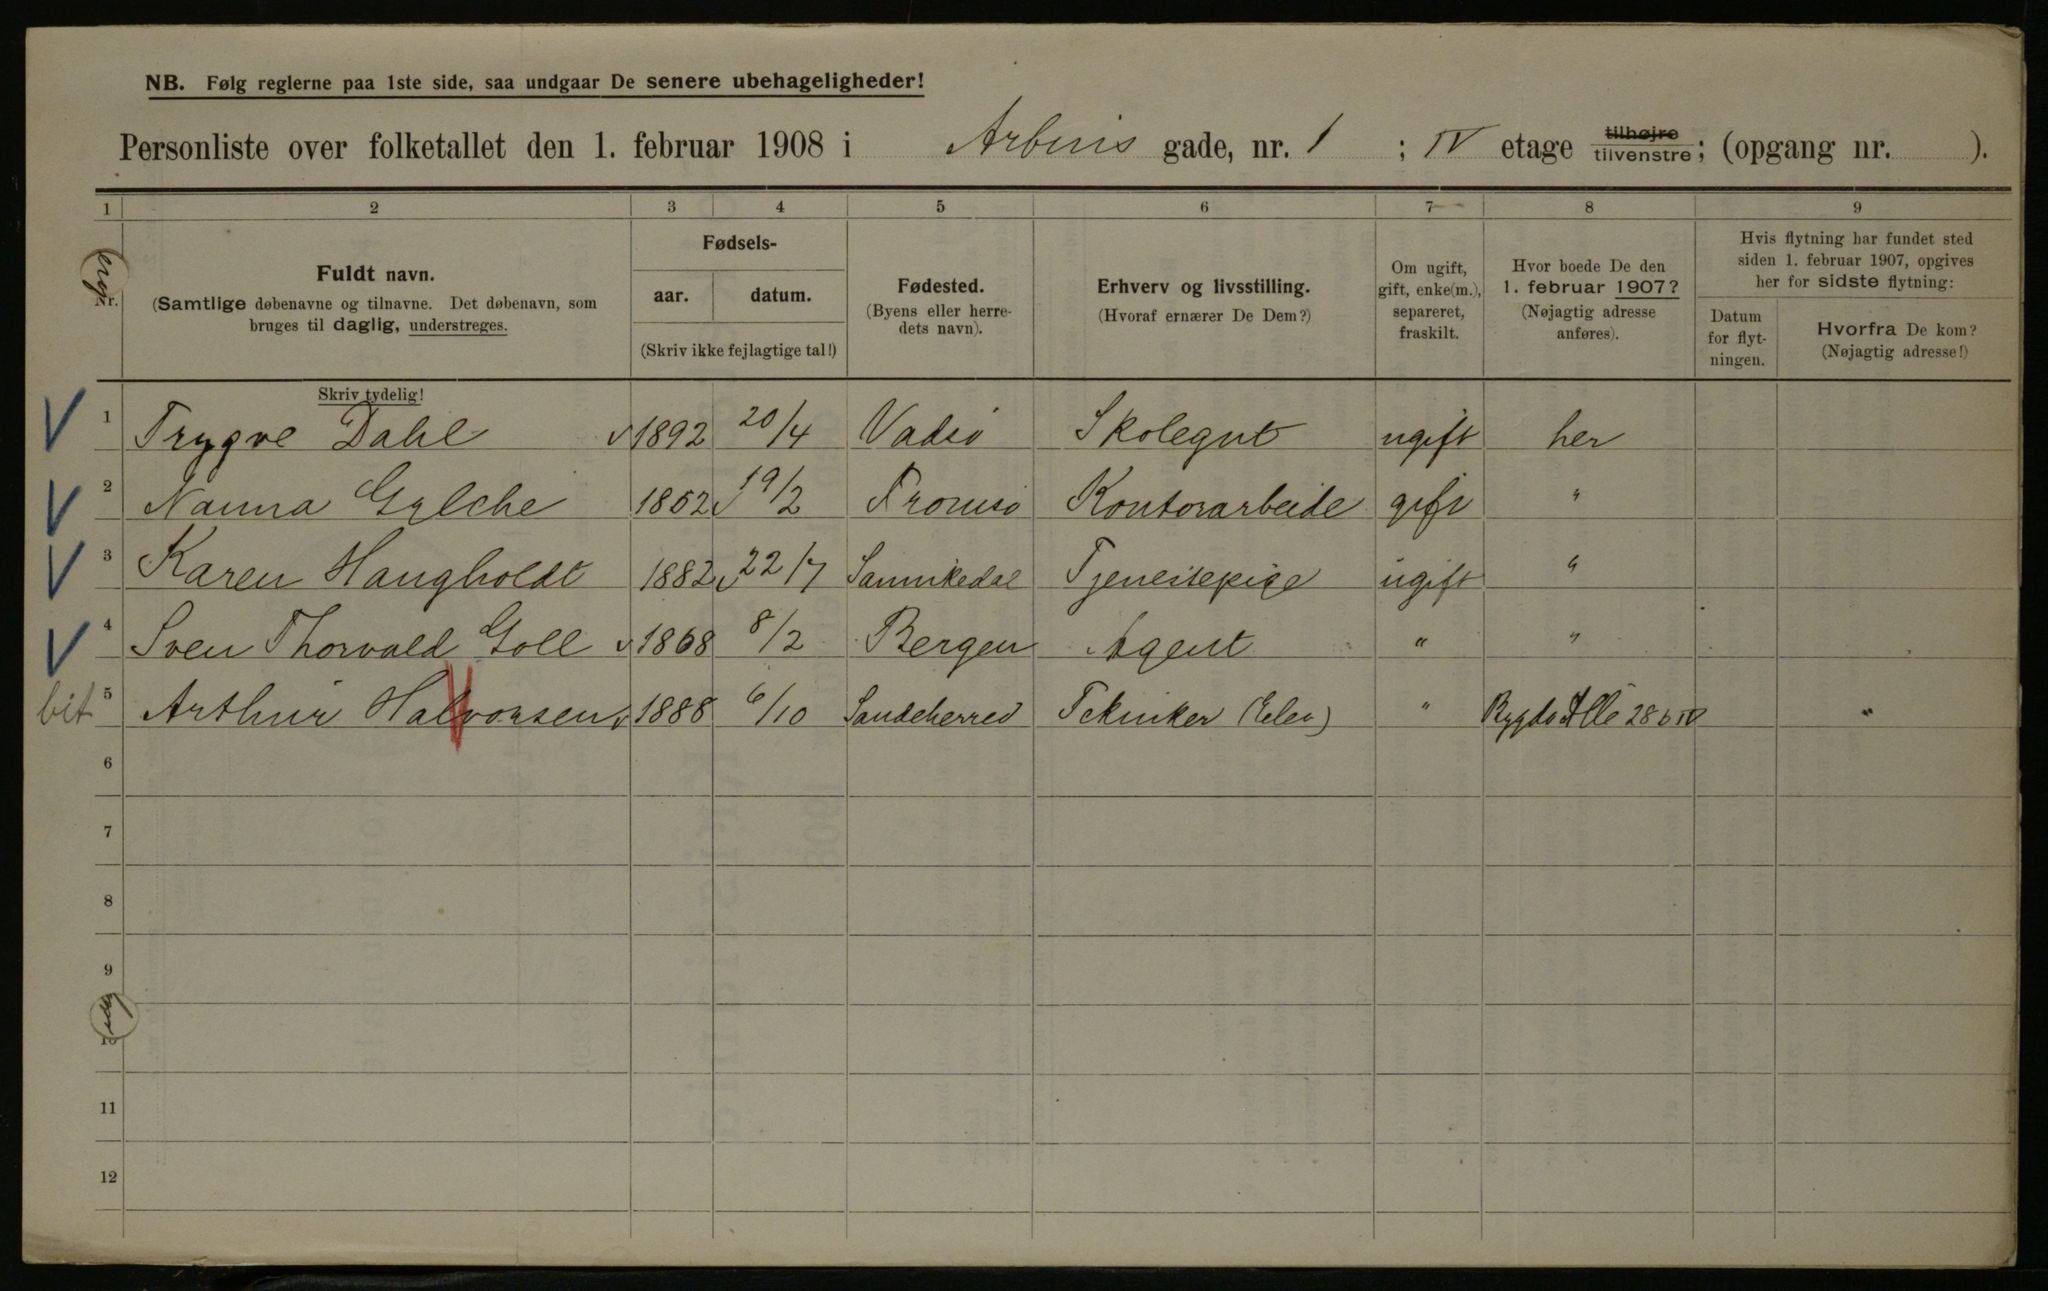 NB. Følg reglerne paa 1ste side, saa undgaar De senere ubehageligheder!
Personliste over folketallet den 1. februar 1908 i Arbins gade, nr. 1 ; IV etage tilhøjre tilvenstre; (opgang nr. ).
1 2 3 4 5 6 7 8 9
Nr.
Fuldt navn.
(Samtlige døbenavne og tilnavne. Det døbenavn, som
bruges til daglig, understreges.
Skriv tydelig!
Fødsels-
aar. datum.
(Skriv ikke fejlagtige tal!)
Fødested.
(Byens eller herre-
dets navn).
Erhverv og livsstilling.
(Hvoraf ernærer De Dem?)
Om ugift,
gift, enke(m.),
separeret,
fraskilt.
Hvor boede De den
1. februar 1907?
(Nøjagtig adresse
anføres).
Hvis flytning har fundet sted
siden 1. februar 1907, opgives
her for sidste flytning:
Datum
for flyt-
ningen.
Hvorfra De kom?
(Nøjagtig adresse!)
1 Trygve Dahl 1892 20/4 Vadsö Skolegut ugift her
2 Nanna Gylche 1852 19/2 Tromsö Kontorarbeide gift "
3 Karen Haugholdt 1882 22/7 Sannikedal Tjenestepige ugift "
4 Sven Thorvald Goll 1868 8/2 Bergen Agent " "
bit 5 Arthur Halvorsen 1888 6/10 Sandeherred Tekniker (Elev) " Bygdö Allé 28 b IV "
6
7
8
9
10
11
12